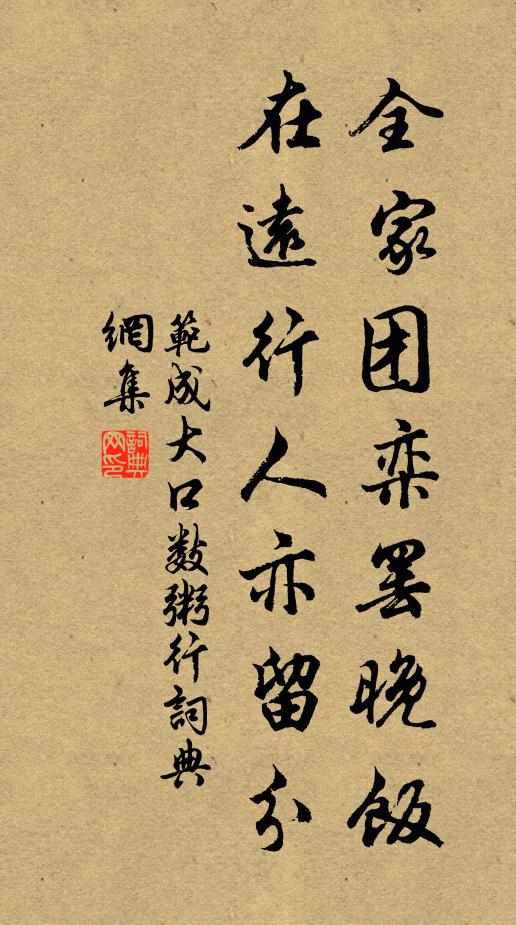 全家团栾罢晚飯
在遠行人亦留分
範成大口數粥行詞典
網集
詞典网印